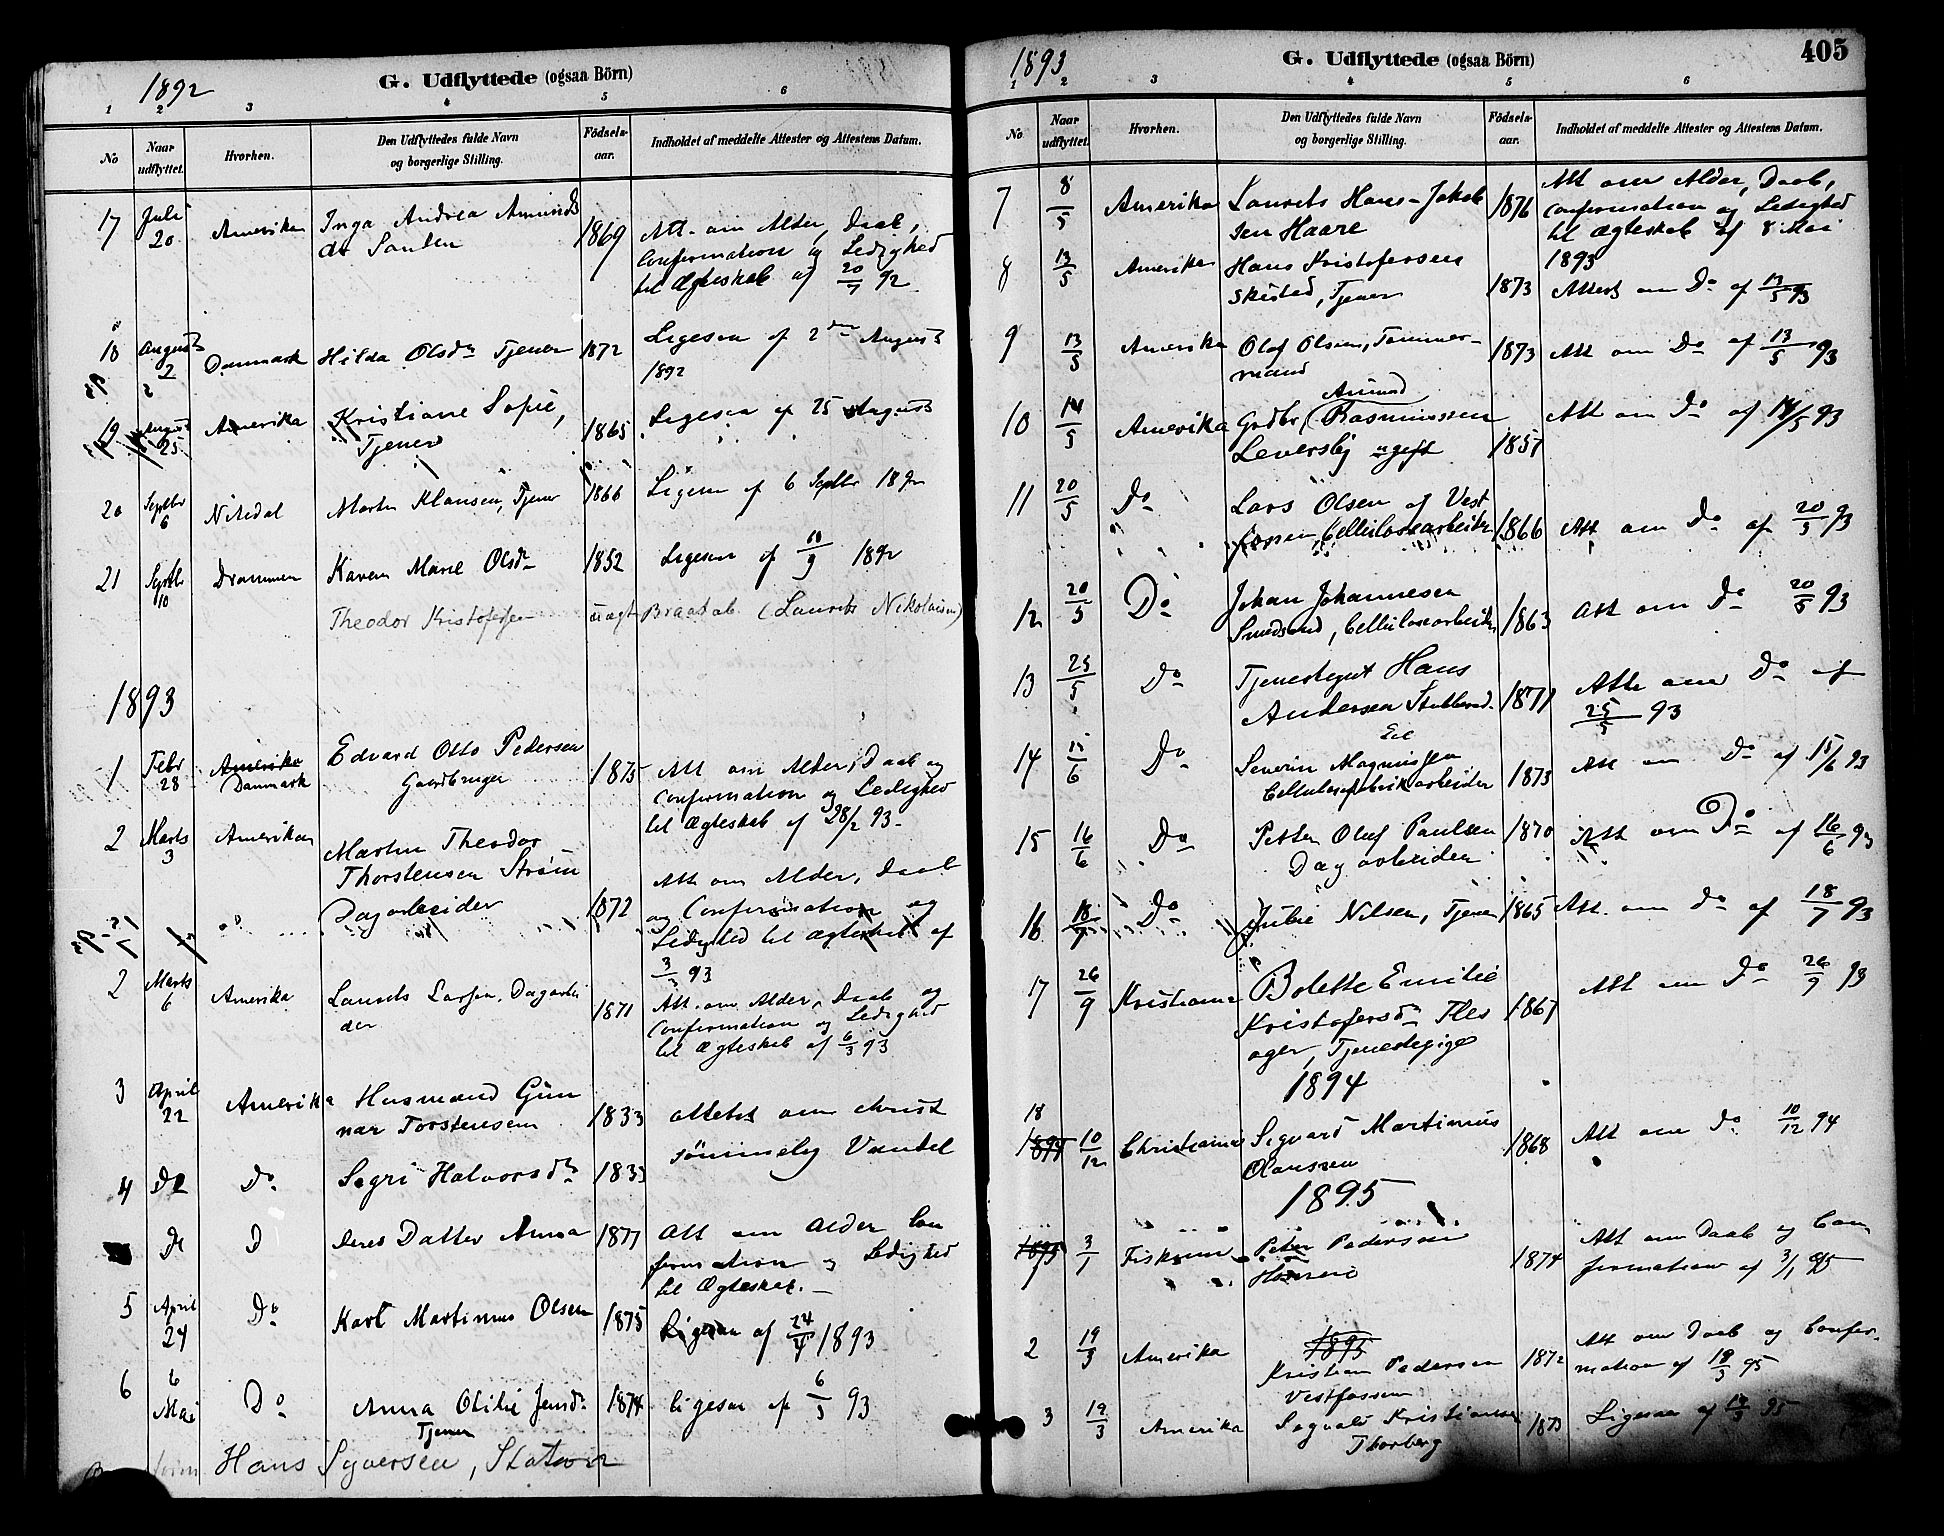 1892
G. Udflyttede (ogsaa Börn)
1 2 3 4 5 6
No
Naar udflyttet.
Hvorhen.
Den Udflyttedes fulde Navn og borgerlige Stilling.
Födsels-aar.
Indholdet af meddelte Attester og Attestens Datum.
17 Juli 20 Amerika Inga Andrea Amunds
dt Santen 1869 Att. om Alder, Daab,
Confirmation og Ledighed
til Ægteskab af 20/7 92
18 August 2 Danmark Hilda Olsdr Tjener 1872 Ligesaa af 2den August
1892
19 August 25 Amerika Kristiane Sofie,
Tjener 1865 Ligesaa af 25 August
20 Septbr 6 Nitedal Marta Klausen, Tjener 1866 Ligesaa af 6 Septbr 1892
21 Septbr 10 Drammen Karen Marie Olsdr 1852 Ligesaa af 10/9 1892
Theodor Kristofersen uægt Braatab (Laurits Nikolaisen)
1893
1 Febr 28 Amerika
Danmark Edvard Otto Pedersen
Gaardbruger 1875 Att om Alder, Daab og
Confirmation og Ledighed
til Ægteskab af 28/2 93
2 Marts 3 Amerika Martin Theodor
Thorstensen Strøm
Dagarbeider 1872 Att om Alder, Daab
og Confirmation og
Ledighed til Ægteskab af
3/3 93
2 Marts 6 Amerika Laurits Larsen, Dagarbei
der 1871 Att. om Alder, Daab og
Confirmation og Ledighed
til Ægteskab af 6/3 93
3 April 22 Amerika Husmand Gun
nar Torstensen 1833 attest om christ
4 Do Do Segri Halvorsdr 1833 sømmelig Vandel
Do D Deres Datter Anna 1877 Att om Alder Con
firmation og Ledighed
til Ægteskab.
5 April 24 Do Karl Martinus Olsen 1875 Ligesaa af 24/4 1893
6 6 Mai Do Anna Otilie Jensdr
Tjener 1874 ligesaa af 6/5 93
Hans Syversen,
1893
G. Udflyttede (ogsaa Börn)
405
1 2 3 4 5 6
No
Naar udflyttet.
Hvorhen.
Den Udflyttedes fulde Navn og borgerlige Stilling.
Födsels-aar.
Indholdet af meddelte Attester og Attestens Datum.
7 8/5 Amerika Laurits Hans-Jakob
sen Haare 1876 Att om Alder, Daab,
Confirmation og Ledighed
til Ægteskab af 8 Mai
1893
8 13/5 Amerika Hans Kristofersen
Skistad, Tjener 1873 Attest om Do af 13/5 93
9 13/5 Amerika Olaf Olsen, Tømmer-
mand 1873 Att om Do af 13/5 93
10 14/5 Amerika Grdbr (Amund
Rasmussen
Leversby ugift 1857 Att om Do af 14/5 93
11 20/5 Do Lars Olsen af Vest
fossen, Cellulosearbeider 1866 Att om Do af 20/5 93
12 20/5 Do Johan Johannesen
Smedsrud, Cellulosearbeider 1863 Att om Do 20/5 93
13 25/5 Do Tjenestegut Hans
Andersen Stubberud 1871 Att om Do af
25/5 93
14 15/6 Do Severin Magnussen
Cellulosefabrikarbeider 1873 Att om Do af 15/6 93
15 16/6 Do Petter Oluf Paulsen
Dagarbeider 1870 Att om Do af 16/6 93
16 18/7 Do Julie Nilsen, Tjener 1865 Att. om Do af 18/7 93
17 26/9 Kristiania Bolette Emilie
Kristofersdr Fles
ager, Tjenestepige 1867 Att om Do 26/9 93
1894
18
1894 10/12 Christiania Sigvard Martinus
Olanssen 1868 Att om Do 10/12 94
1895
1895
1 3/1 Fiskum Peter Pedersen 1874 Att om Daab og Con
firmation af 3/1 95
1895
2 19/3 Amerika Kristian Pedersen
Vestfossen 1872 Att om Daab og Confir-
mation af 19/3 95
3 19/3 Amerika Sigvald Kristiansen
Thorberg 1873 Ligesaa af 19/3 95